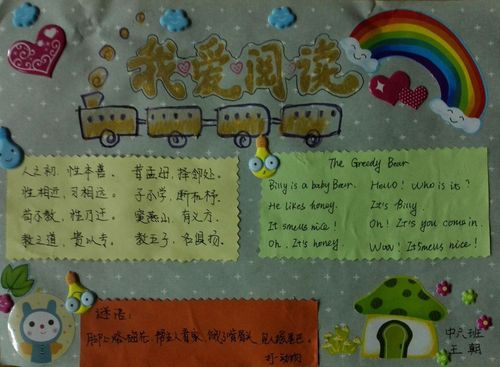 我爱阅读
人之初，性本善。 昔孟母，择邻处。
性相近，习相远。 子不学，断机杼。
苟不教，性乃迁。 窦燕山，有义方。
教之道，贵以专。 教五子，名俱扬。
The Greedy Bear
Billy is a baby Bear. Hello! Who is it?
He likes honey. It's Billy.
It smells nice! Oh! It's you come in.
Oh. It's honey. Wow! It smells nice!
谜语：
脚上踏梅花，帮主人看家，饿了啃骨头，见人摇尾巴。
打一动物
中六班
王朝